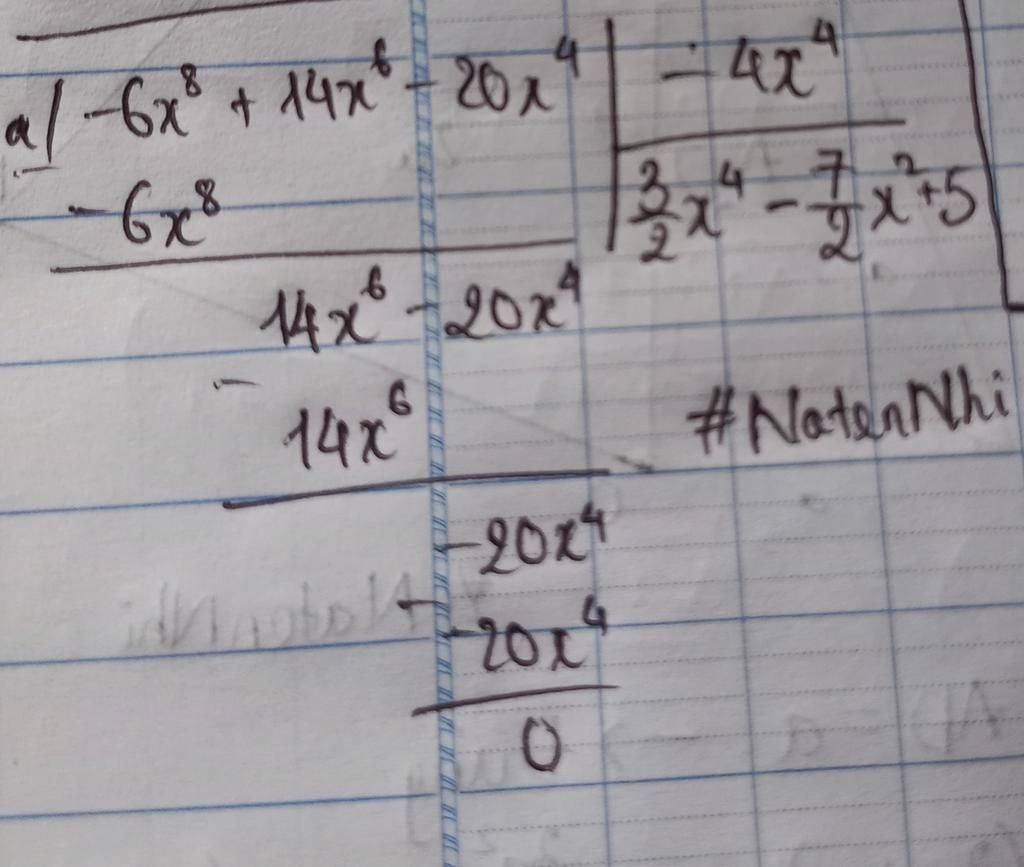 a/ -6x⁸ + 14x⁶ - 20x⁴ | - 4x⁴
- -6x⁸ | 3/2 x⁴ - 7/2 x² + 5
14x⁶ - 20x⁴
-
14x⁶ #NatenNhi
-20x⁴
-
-20x⁴
0